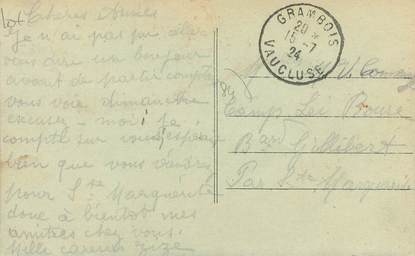 Chères Amies
Je n'ai pas pu aller
vous dire un bonjour
avant de partir compte
vous voir dimanche
excusez-moi je
compte sur vous espérant
bien que vous viendrez
pour Ste Marguerite
donc à bientôt mes
amitiés chez vous.
Mille caresses Zize
GRAMBOIS
20 *
15-7
24
VAUCLUSE
Camp
Bard Gillibert
Par Ste Marguerite